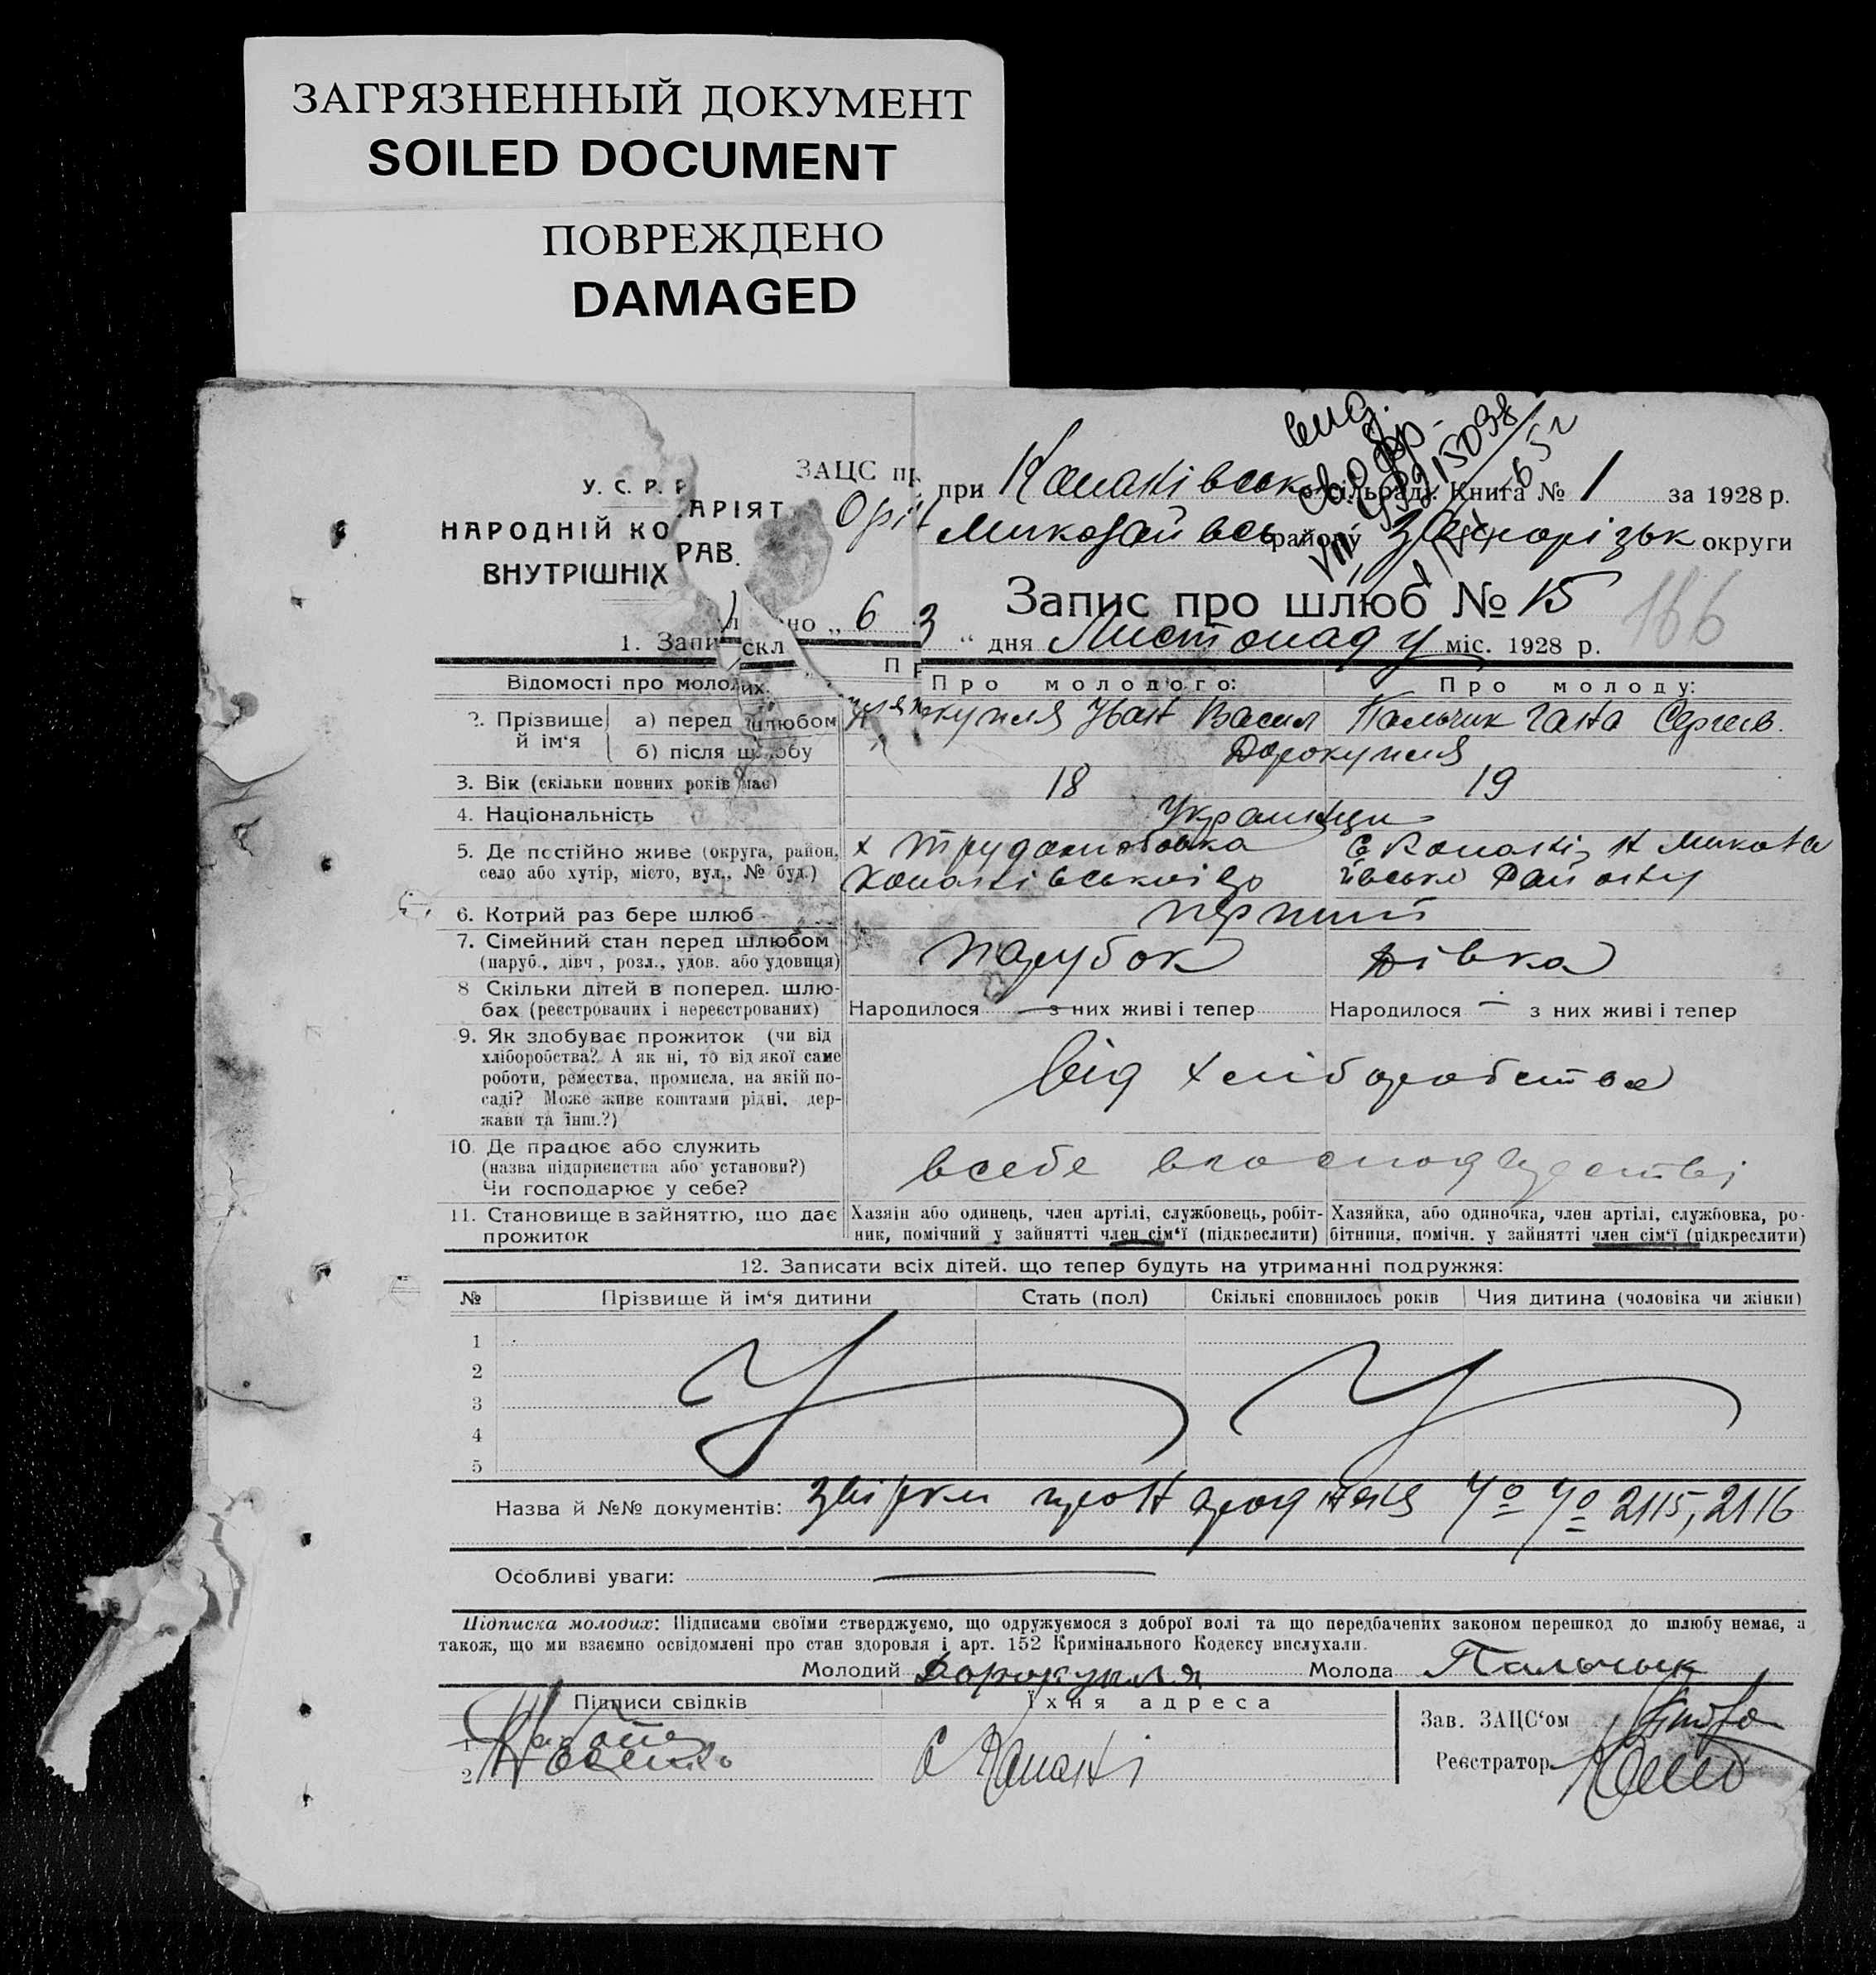 ЗАГРЯЗНЕННЫЙ ДОКУМЕНТ
SOILED DOCUMENT
ПОВРЕЖДЕНО
DAMAGED
У. С. Р. Р
НАРОДНІЙ КО АРІЯТ
ВНУТРІШНІХ РАВ.
ЗАЦС пр
при Копанівськ сільраді. Книга № 1 за 1928 р.
Миколаївськ району Запорізьк округи
Запис про шлюб № 15
166
1. Запи скл но „ 6
3 “ дня Листопаду міс. 1928 р.
Відомості про молодих. Про молодого: Про молоду:
2. Прізвище й ім‘я а) перед шлюбом
окупля Іван Васил Пальчик Ганна Сергеев.
б) після шлюбу Дорокупля
3. Вік (скільки повних років має) 18 19
4. Національність Украинци
5. Де постійно живе (округа, район, село або хутір, місто, вул., № буд.)
х с Копані
району
6. Котрий раз бере шлюб перший
7. Сімейний стан перед шлюбом парубок дівка
(паруб., дівч., розл., удов. або удовиця)
8 Скільки дітей в поперед. шлю-
бах (реєстрованих і нереєстрованих) Народилося — з них живі і тепер Народилося — з них живі і тепер
9. Як здобуває прожиток (чи від
хліборобства? А як ні, то від якої саме
роботи, ремества, промисла, на якій по-
саді? Може живе коштами рідні, дер-
жави та інш.?)
від хліборобства
10. Де працює або служить
(назва підприємства або установи?)
Чи господарює у себе?
всебе
11. Становище в зайняттю, що дає прожиток
Хазяін або одинець, член артілі, службовець, робіт-
ник, помічний у зайнятті член сім‘ї (підкреслити)
Хазяйка, або одиночка, член артілі, службовка, ро-
бітниця, помічн. у зайнятті член сім‘ї (підкреслити)
12. Записати всіх дітей. що тепер будуть на утриманні подружжя:
№ Прізвище й ім‘я дитини Стать (пол) Скількі сповнилось років Чия дитина (чоловіка чи жінки)
1
2
3
4
5
Назва й №№ документів: 2115, 2116
Особливі уваги: —
Підписка молодих: Підписами своїми стверджуємо, що одружуємося з доброї волі та що передбачених законом перешкод до шлюбу немає, а
також, що ми взаємно освідомлені про стан здоровля і арт. 152 Кримінального Кодексу вислухали.
Молодий Дорокупля Молода Пальчык
Підписи свідків Їхня адреса
1
2
с Копані
Зав. ЗАЦС‘ом
Реєстратор